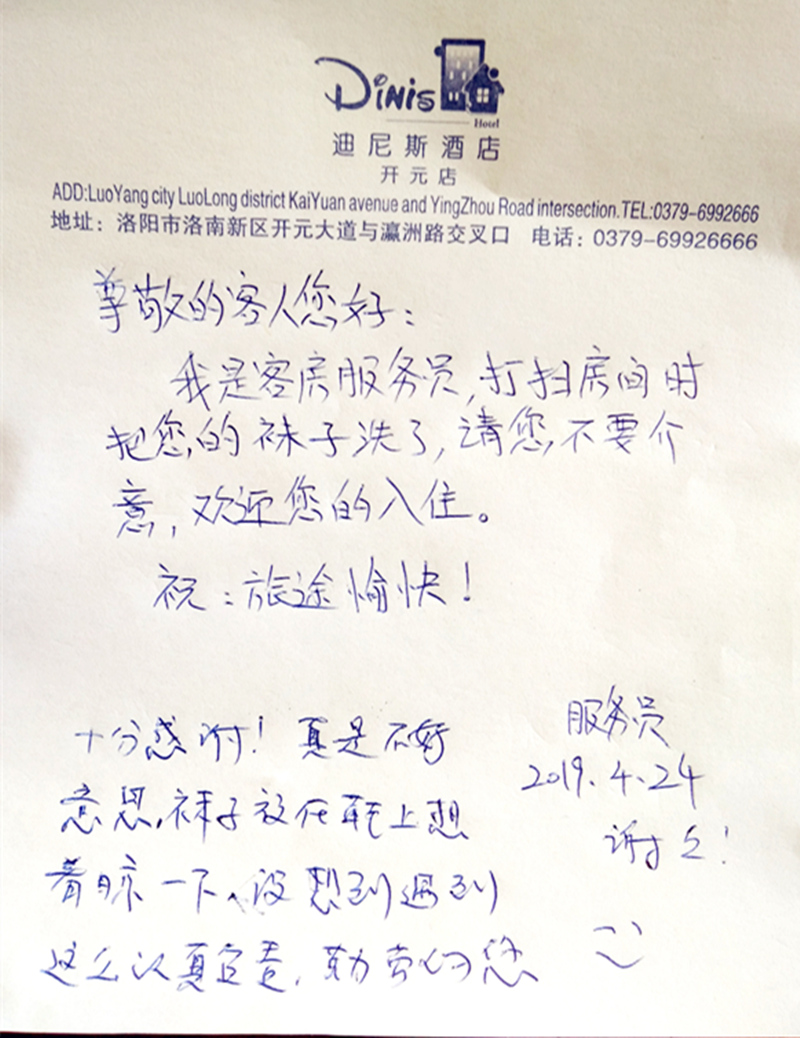 Dinis
Hotel
迪尼斯酒店
开元店
ADD:LuoYang city LuoLong district KaiYuan avenue and YingZhou Road intersection.TEL:0379-6992666
地址：洛阳市洛南新区开元大道与瀛洲路交叉口 电话：0379-69926666
尊敬的客人您好：
我是客房服务员,打扫房间时
把您的袜子洗了,请您不要介
意,欢迎您的入住。
祝：旅途愉快!
服务员
2019.4.24
十分感谢! 真是不好
意思,袜子放在鞋上想
着晾一下、没想到遇到
这么认真负责,勤劳的您
谢么!